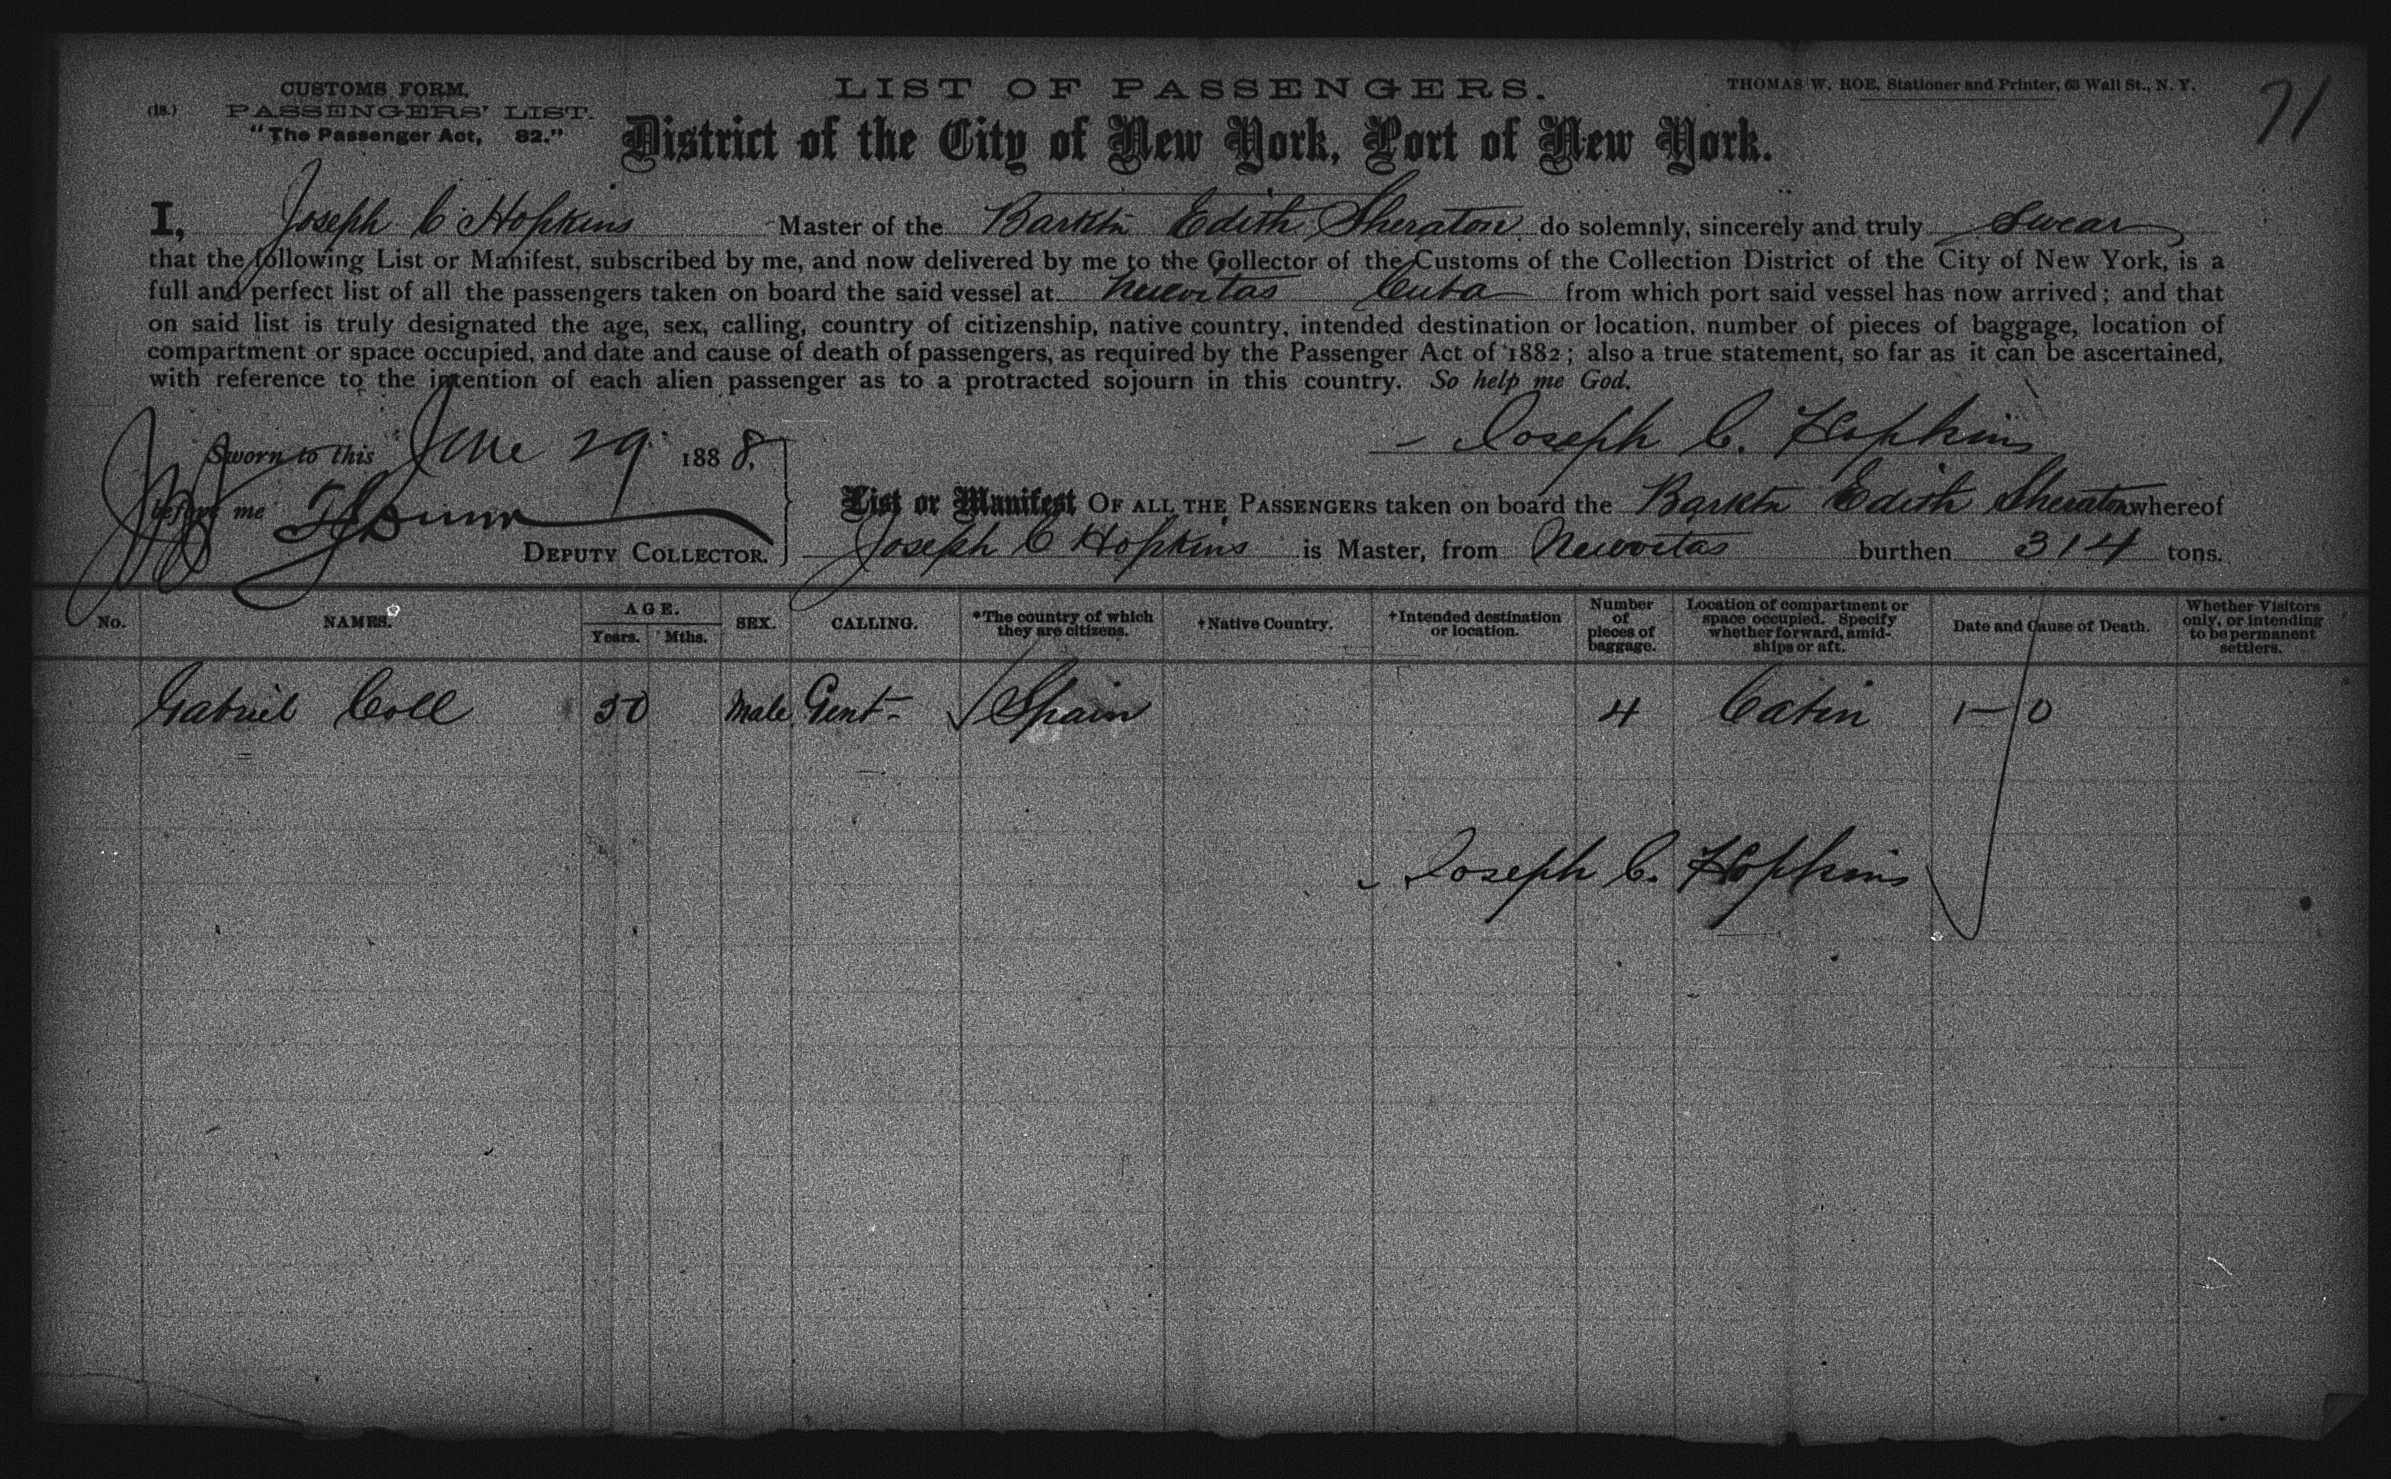 CUSTOMS FORM.
(18.) PASSENGERS' LIST.
"The Passenger Act, 82."
LIST OF PASSENGERS.
THOMAS W. ROE, Stationer and Printer, 63 Wall St., N. Y.
71
District of the City of New York, Port of New York.
I, Joseph C Hopkins Master of the Barktn Edith Sheraton do solemnly, sincerely and truly swear
that the following List or Manifest, subscribed by me, and now delivered by me to the Collector of the Customs of the Collection District of the City of New York, is a
full and perfect list of all the passengers taken on board the said vessel at Nuevitas Cuba from which port said vessel has now arrived; and that
on said list is truly designated the age, sex, calling, country of citizenship, native country, intended destination or location, number of pieces of baggage, location of
compartment or space occupied, and date and cause of death of passengers, as required by the Passenger Act of 1882; also a true statement, so far as it can be ascertained,
with reference to the intention of each alien passenger as to a protracted sojourn in this country. So help me God.
Sworn to this June 29 1888,
Joseph C. Hopkins
before me
DEPUTY COLLECTOR.
List or Manifest OF ALL THE PASSENGERS taken on board the Barktn Edith Sheraton whereof
Joseph C Hopkins is Master, from Nuevitas burthen 314 tons.
No. NAMES. AGE. Years. Mths. SEX. CALLING. *The country of which they are citizens. †Native Country. †Intended destination or location. Number of pieces of baggage. Location of compartment or space occupied. Specify whether forward, amidships or aft. Date and Cause of Death. Whether Visitors only, or intending to be permanent settlers.
Gabriel Coll 30 Male Gent- √ Spain 4 Cabin 1-0
Joseph C. Hopkins